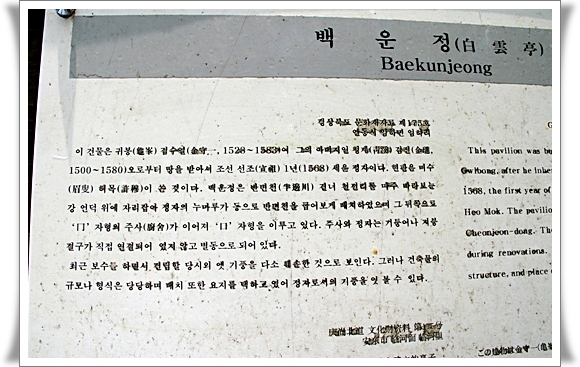 백 운 정(白雲亭)
Baekunjeong
경상북도 문화재자료 제175호
안동시 임하면 임하리
이 건물은 귀봉(龜峯) 김수일(金守一, 1528~1583)이 그의 아버지인 청계(靑溪) 김진(金璡,
1500~1580)으로부터 땅을 받아서 조선 선조(宣祖) 1년(1568) 세운 정자이다. 현판을 미수
(眉叟) 허목(許穆)이 쓴 것이다. 백운정은 반변천(半邊川) 건너 천전리를 마주 바라보는
강 언덕 위에 자리잡아 정자의 누마루가 동으로 반변천을 굽어보게 배치하였으며 그 뒤쪽으로
'ㄇ' 자형의 주사(廚舍)가 이어져 'ㅁ' 자형을 이루고 있다. 주사와 정자는 기둥이나 지붕
결구가 직접 연결되어 있지 않고 별동으로 되어 있다.
최근 보수를 하면서 건립할 당시의 옛 기풍을 다소 훼손한 것으로 보인다. 그러나 건축물의
규모나 형식은 당당하며 배치 또한 요지를 택하고 있어 정자로서의 기풍을 엿볼 수 있다.
This pavilion was bu
Gwibong, after he inher
1568, the first year of
Heo Mok. The pavilio
Cheonjeon-dong. The
during renovations.
structure, and place o
慶尙北道 文化財資料
安東市 臨河面 臨河里
この建物は金守一(龜